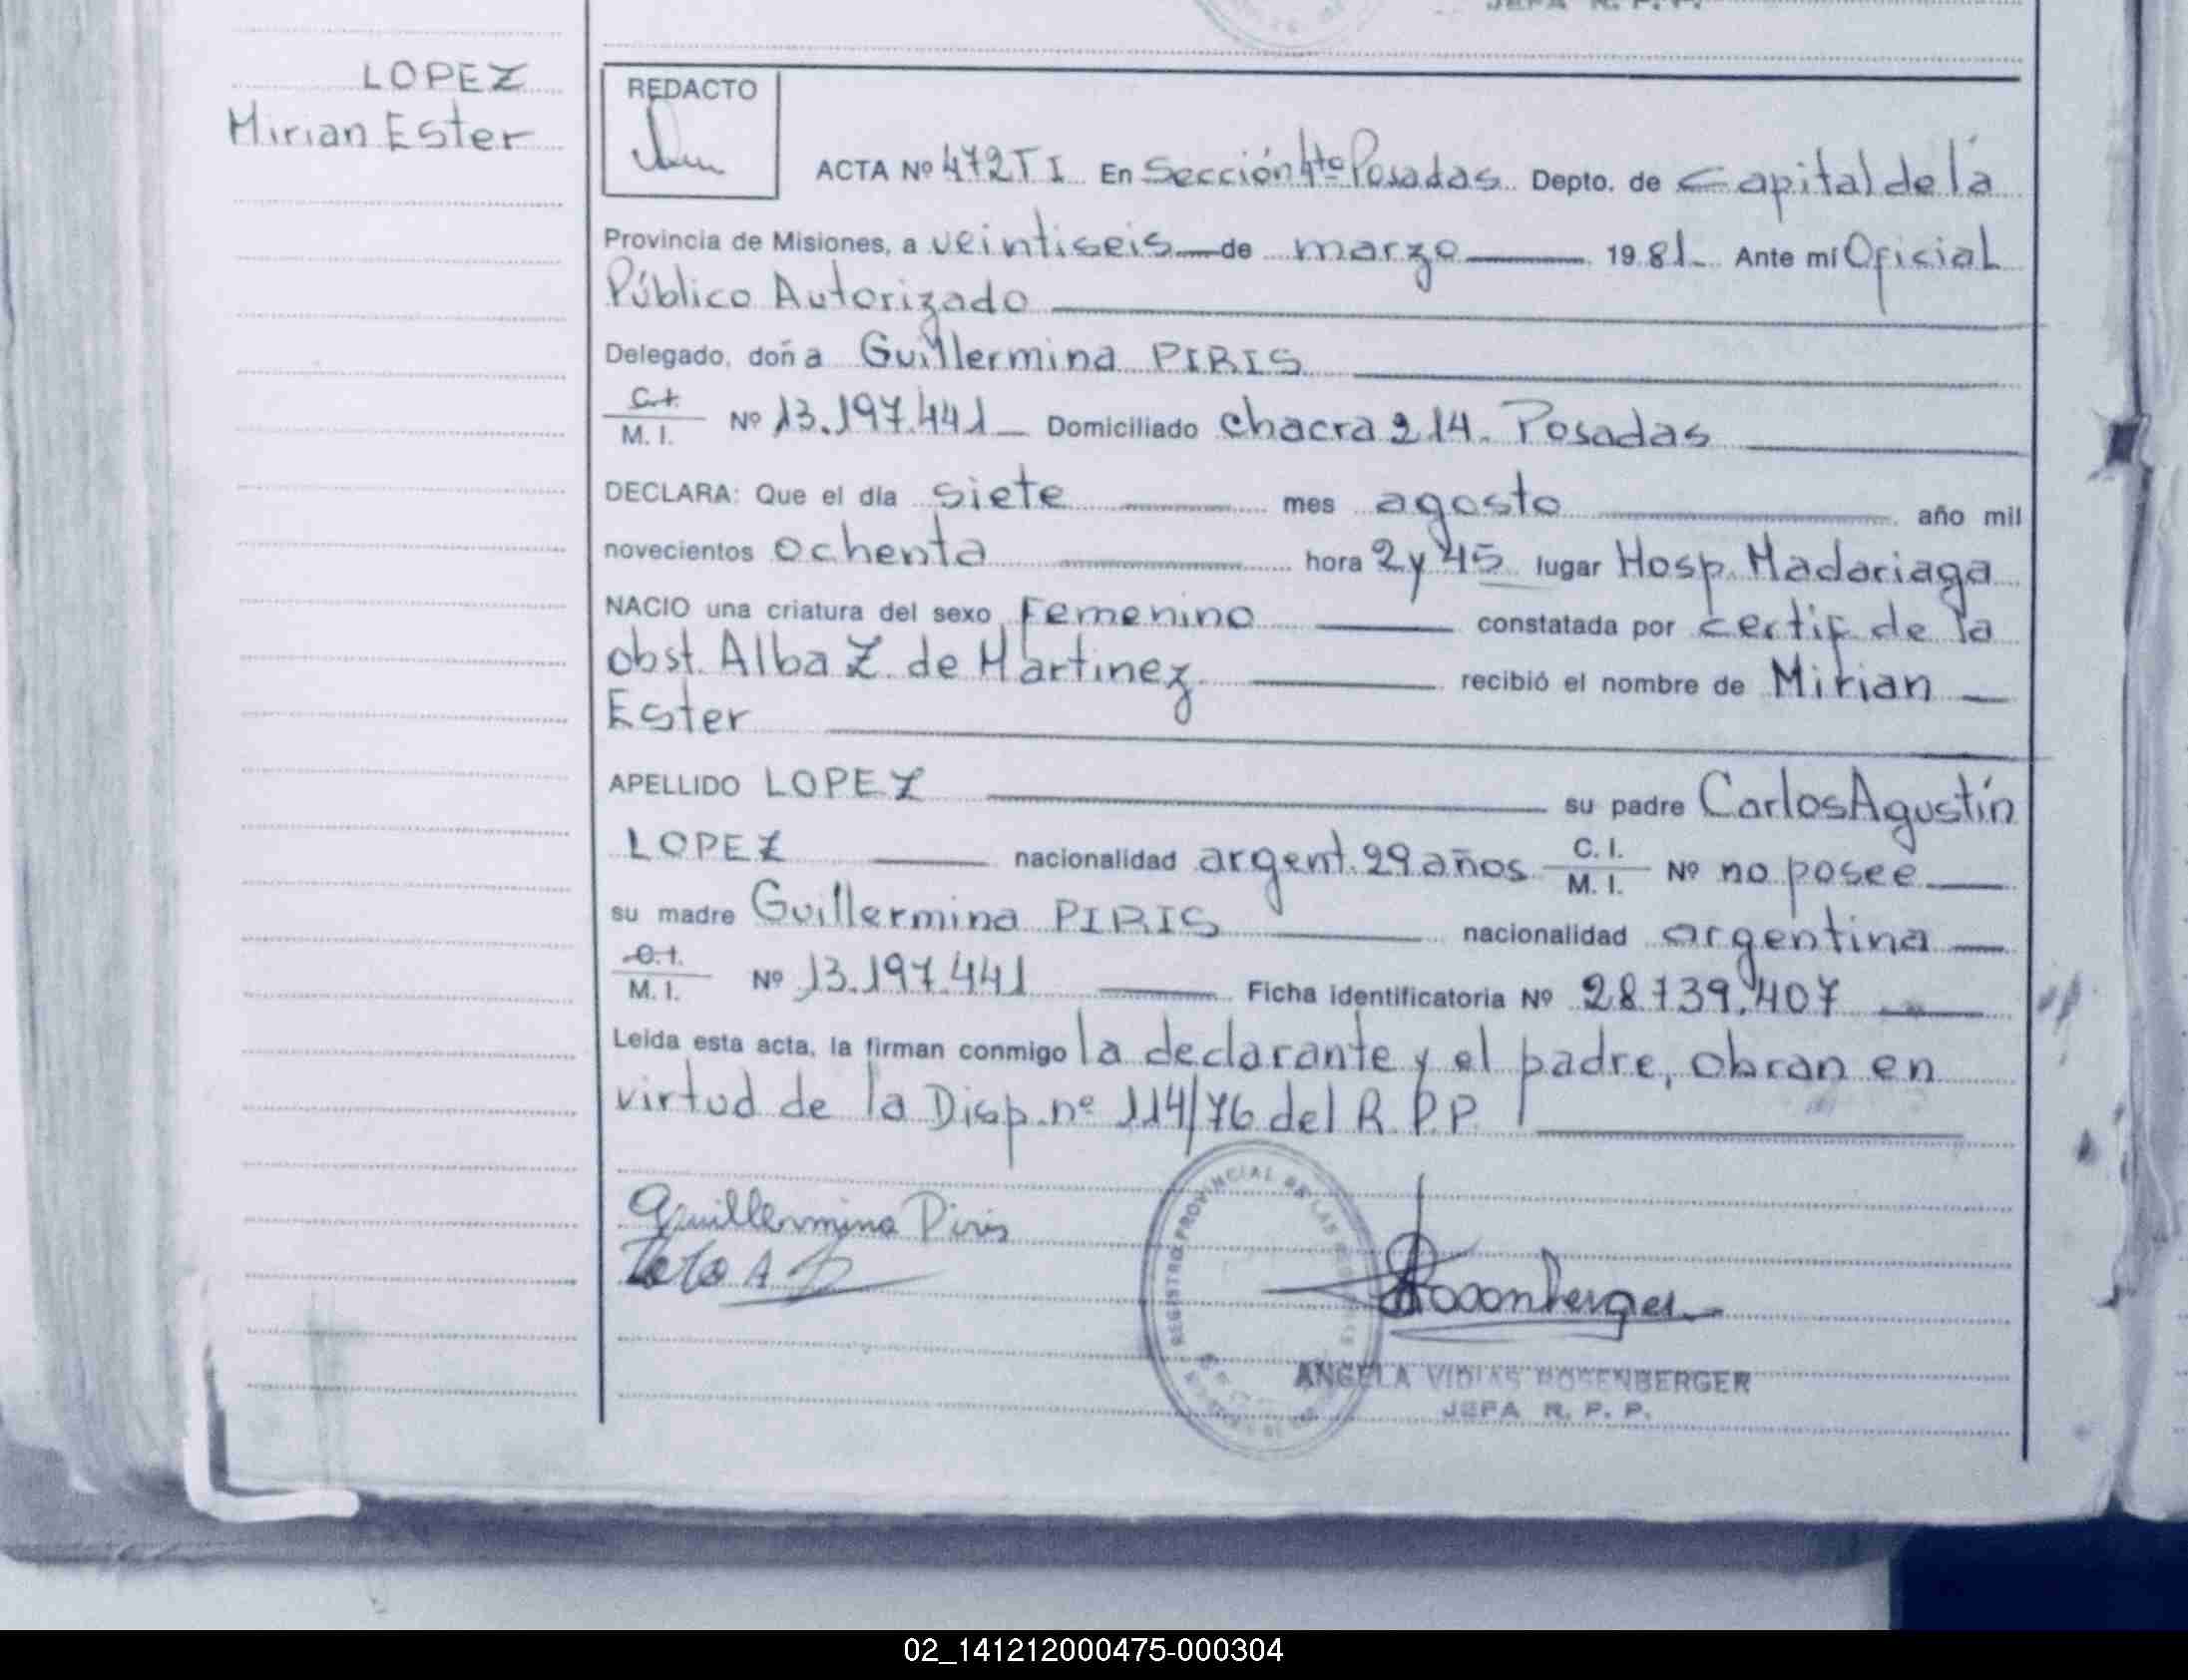 JEFA R. P. P.
LOPEZ
Mirian Ester
REDACTO
ACTA Nº 472 T I En Sección 4to Posadas Depto. de Capital de la
Provincia de Misiones, a veintiseis de marzo 1981 Ante mí Oficial
Público Autorizado
Delegado, doña Guillermina PIRIS
C.I.
M. I. Nº 13.197.441 Domiciliado chacra 214. Posadas
DECLARA: Que el día siete mes agosto año mil
novecientos ochenta hora 2 y 45 lugar Hosp. Madariaga
NACIO una criatura del sexo Femenino constatada por certif. de la
obst. Alba Z. de Martinez recibió el nombre de Mirian
Ester
APELLIDO LOPEZ su padre Carlos Agustín
LOPEZ nacionalidad argent. 29 años C. I. / M. I. Nº no posee
su madre Guillermina PIRIS nacionalidad argentina
C.I.
M. I. Nº 13.197.441 Ficha Identificatoria Nº 28.739.407
Leída esta acta, la firman conmigo la declarante y el padre, obran en
virtud de la Disp. nº 114/76 del R.P.P.
Guillermina Piris
REGISTRO PROVINCIAL DE LAS
Rosenberger
ANGELA VIDIAS ROSENBERGER
JEFA R. P. P.
02_141212000475-000304